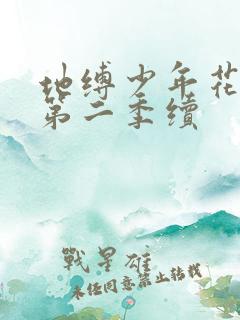 地缚少年花
第二季續
戰星雄
未经同意禁止转载